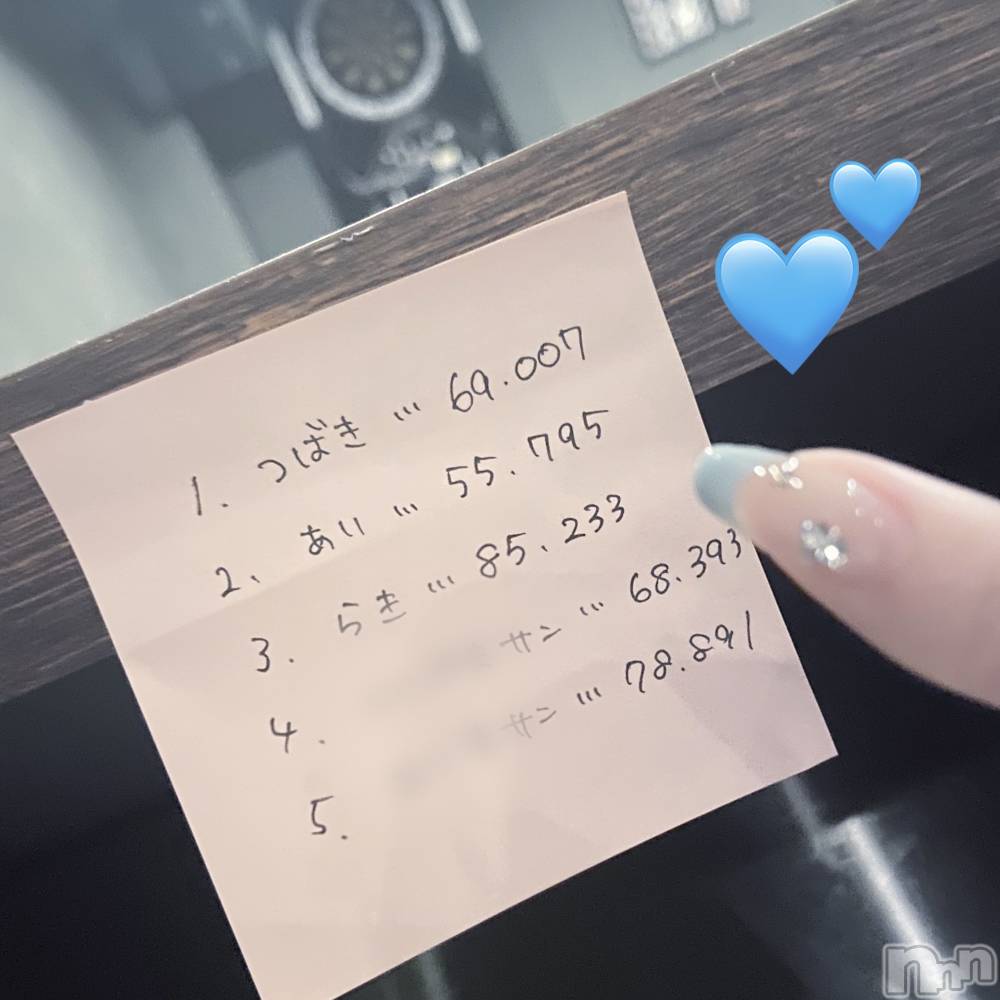 1. つばき … 69.007
2、 あい … 55.795
3. らき … 85、233
4. サン … 68.393
5. サン … 78.891
nnn